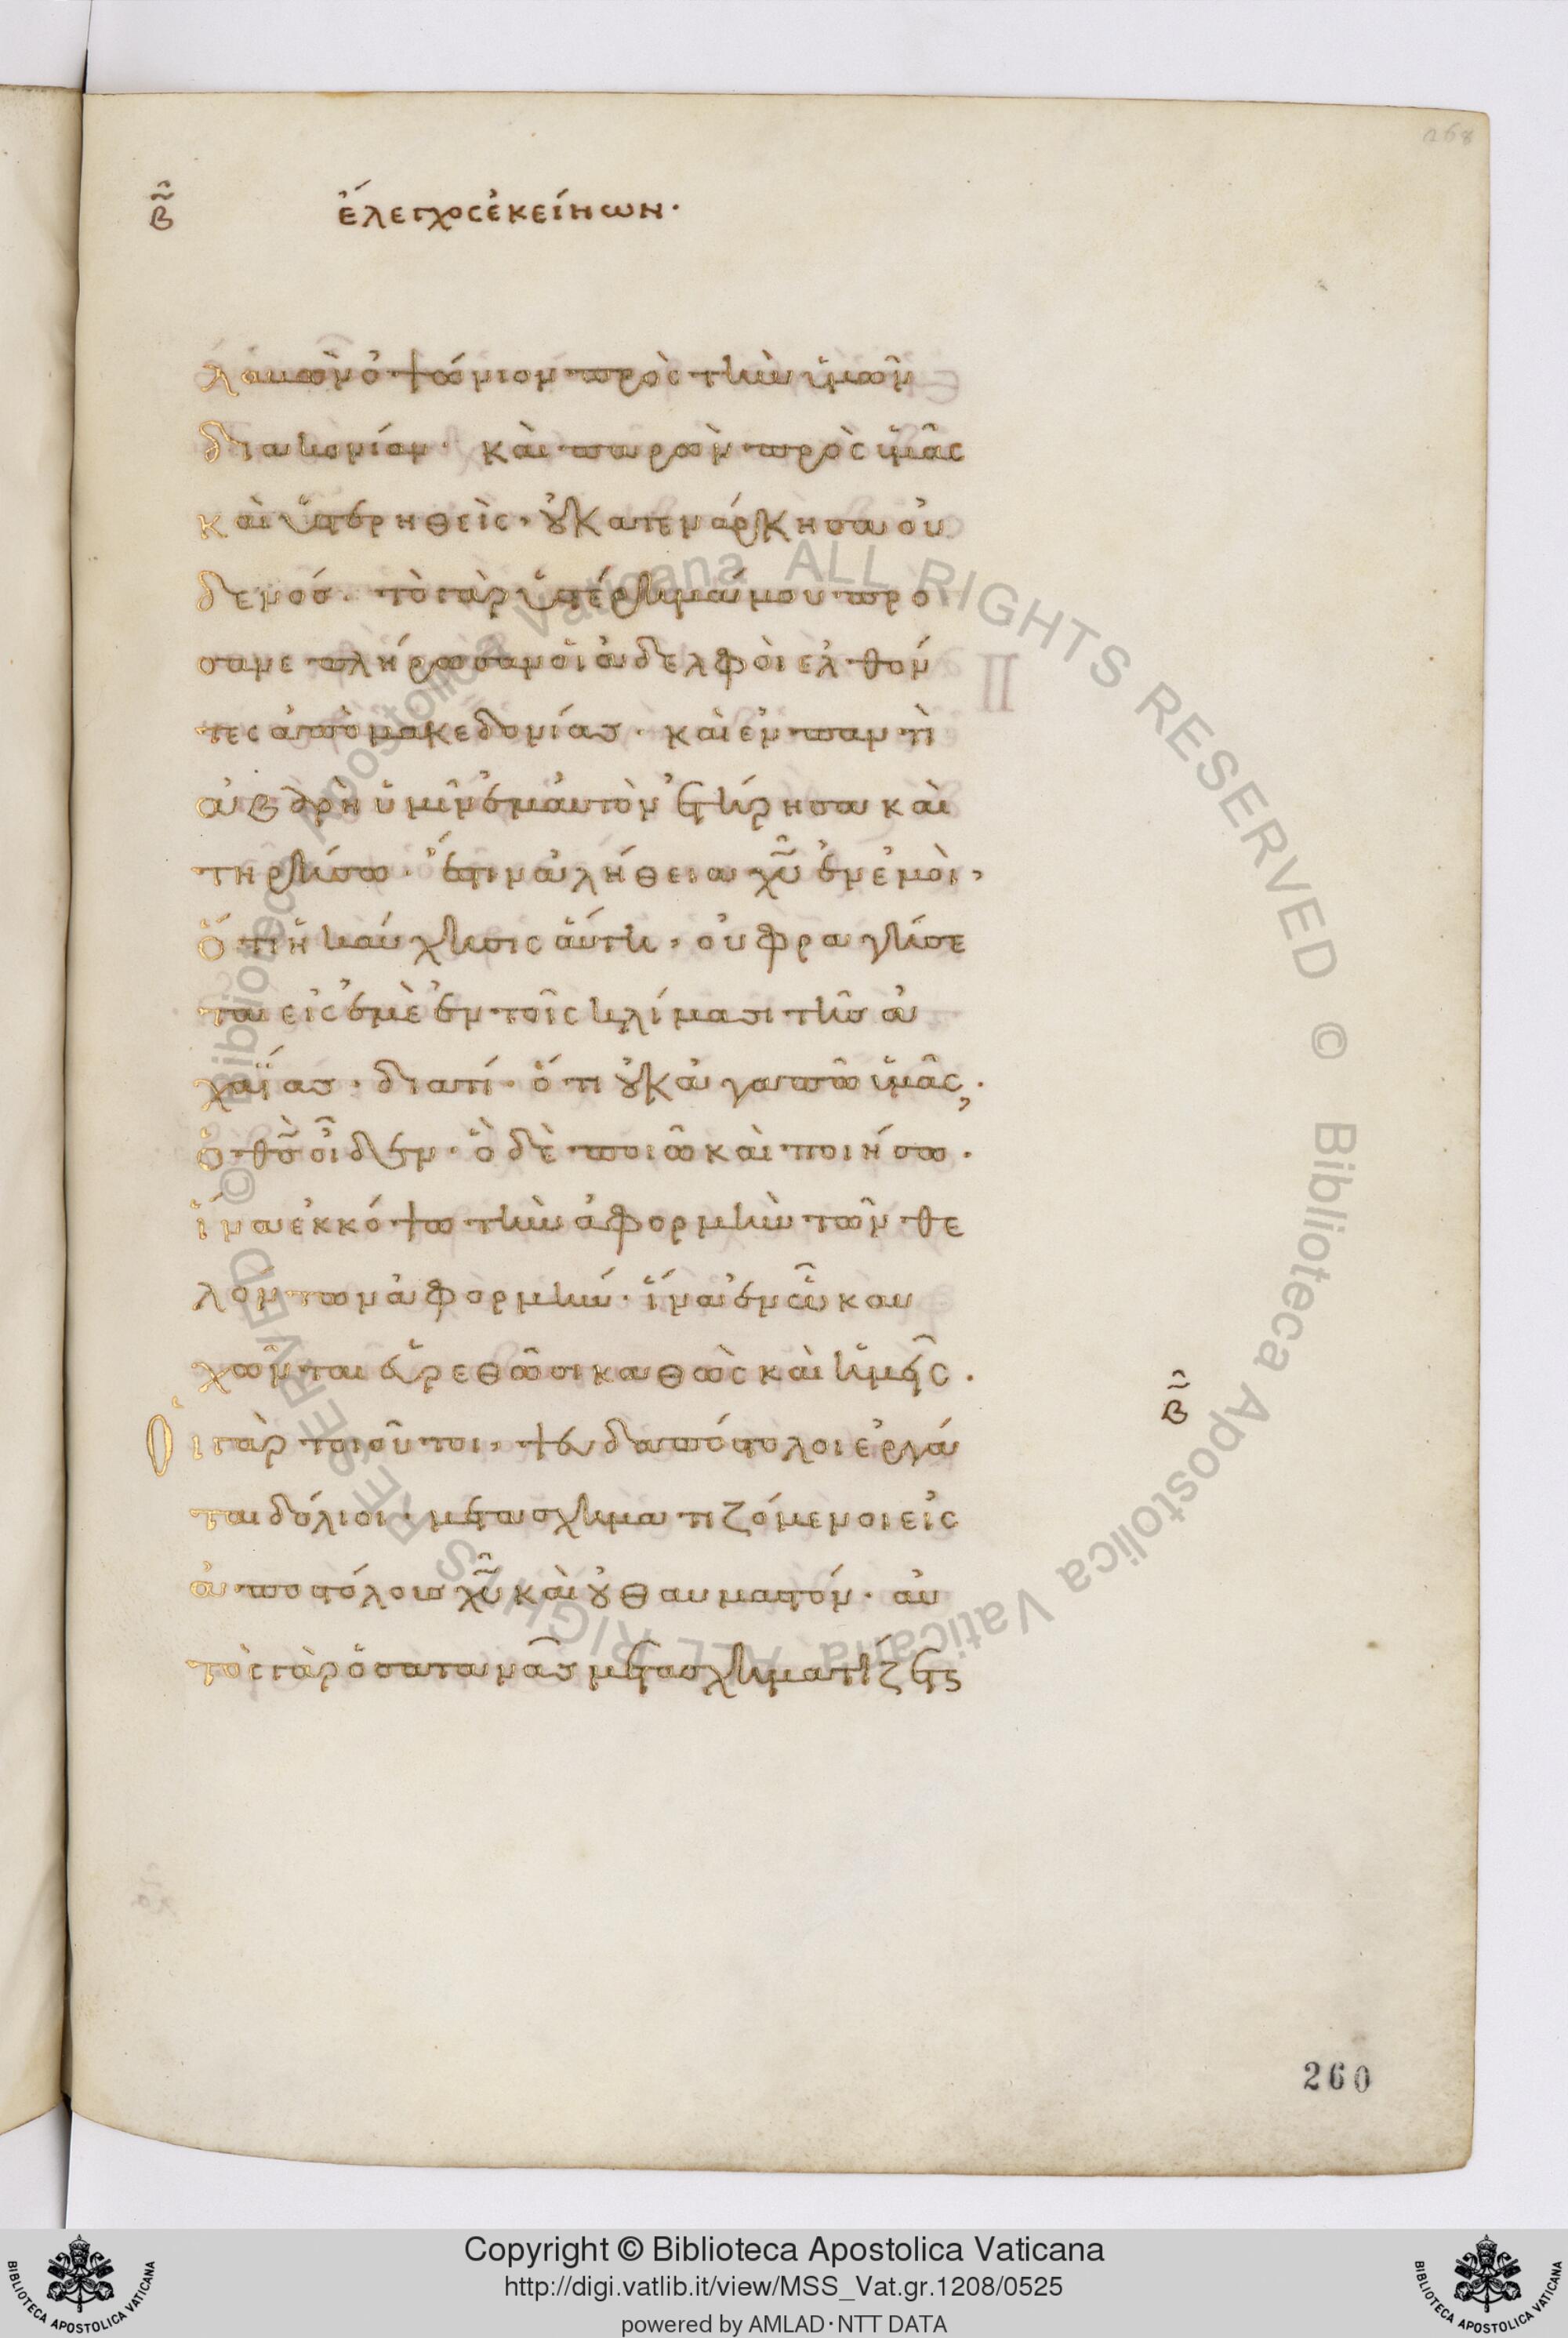 268
β ἔλεγχος ἐκείνων·
λαβὼν ὀψώνιον πρὸς τὴν ὑμῶν
διακονίαν· καὶ παρὼν πρὸς ὑμᾶς
καὶ ὑστερηθεὶς, οὐ κατενάρκησα οὐ
δενός· τὸ γὰρ ὑστέρημά μου προ
σανεπλήρωσαν οἱ ἀδελφοὶ ἐλθόν
τες ἀπὸ μακεδονίας· καὶ ἐν παντὶ
ἀβαρῆ ὑμῖν ἐμαυτὸν ἐτήρησα καὶ
τηρήσω· ἔστιν ἀλήθεια χῦ ἐν ἐμοὶ,
ὅτι ἡ καύχησις αὕτη, οὐ φραγήσε
ται εἰς ἐμὲ ἐν τοῖς κλίμασι τῆς ἀ
χαΐας· διατί· ὅτι οὐκ ἀγαπῶ ὑμᾶς;
ὁ θς οἶδεν· ὃ δὲ ποιῶ καὶ ποιήσω·
ἵνα ἐκκόψω τὴν ἀφορμὴν τῶν θε
λόντων ἀφορμήν· ἵνα ἐν ᾧ καυ
χῶνται εὑρεθῶσι καθὼς καὶ ἡμεῖς·
Οἱ γὰρ τοιοῦτοι, ψευδαπόστολοι ἐργά
ται δόλιοι· μετασχηματιζόμενοι εἰς
β
ἀποστόλους χῦ καὶ οὐ θαυμαστόν· αὐ
τὸς γὰρ ὁ σατανᾶς μετασχηματίζεται
260
© Biblioteca Apostolica Vaticana ALL RIGHTS RESERVED © Biblioteca Apostolica Vaticana ALL RIGHTS RESERVED
Copyright © Biblioteca Apostolica Vaticana
http://digi.vatlib.it/view/MSS_Vat.gr.1208/0525
powered by AMLAD·NTT DATA
BIBLIOTECA APOSTOLICA VATICANA
BIBLIOTECA APOSTOLICA VATICANA